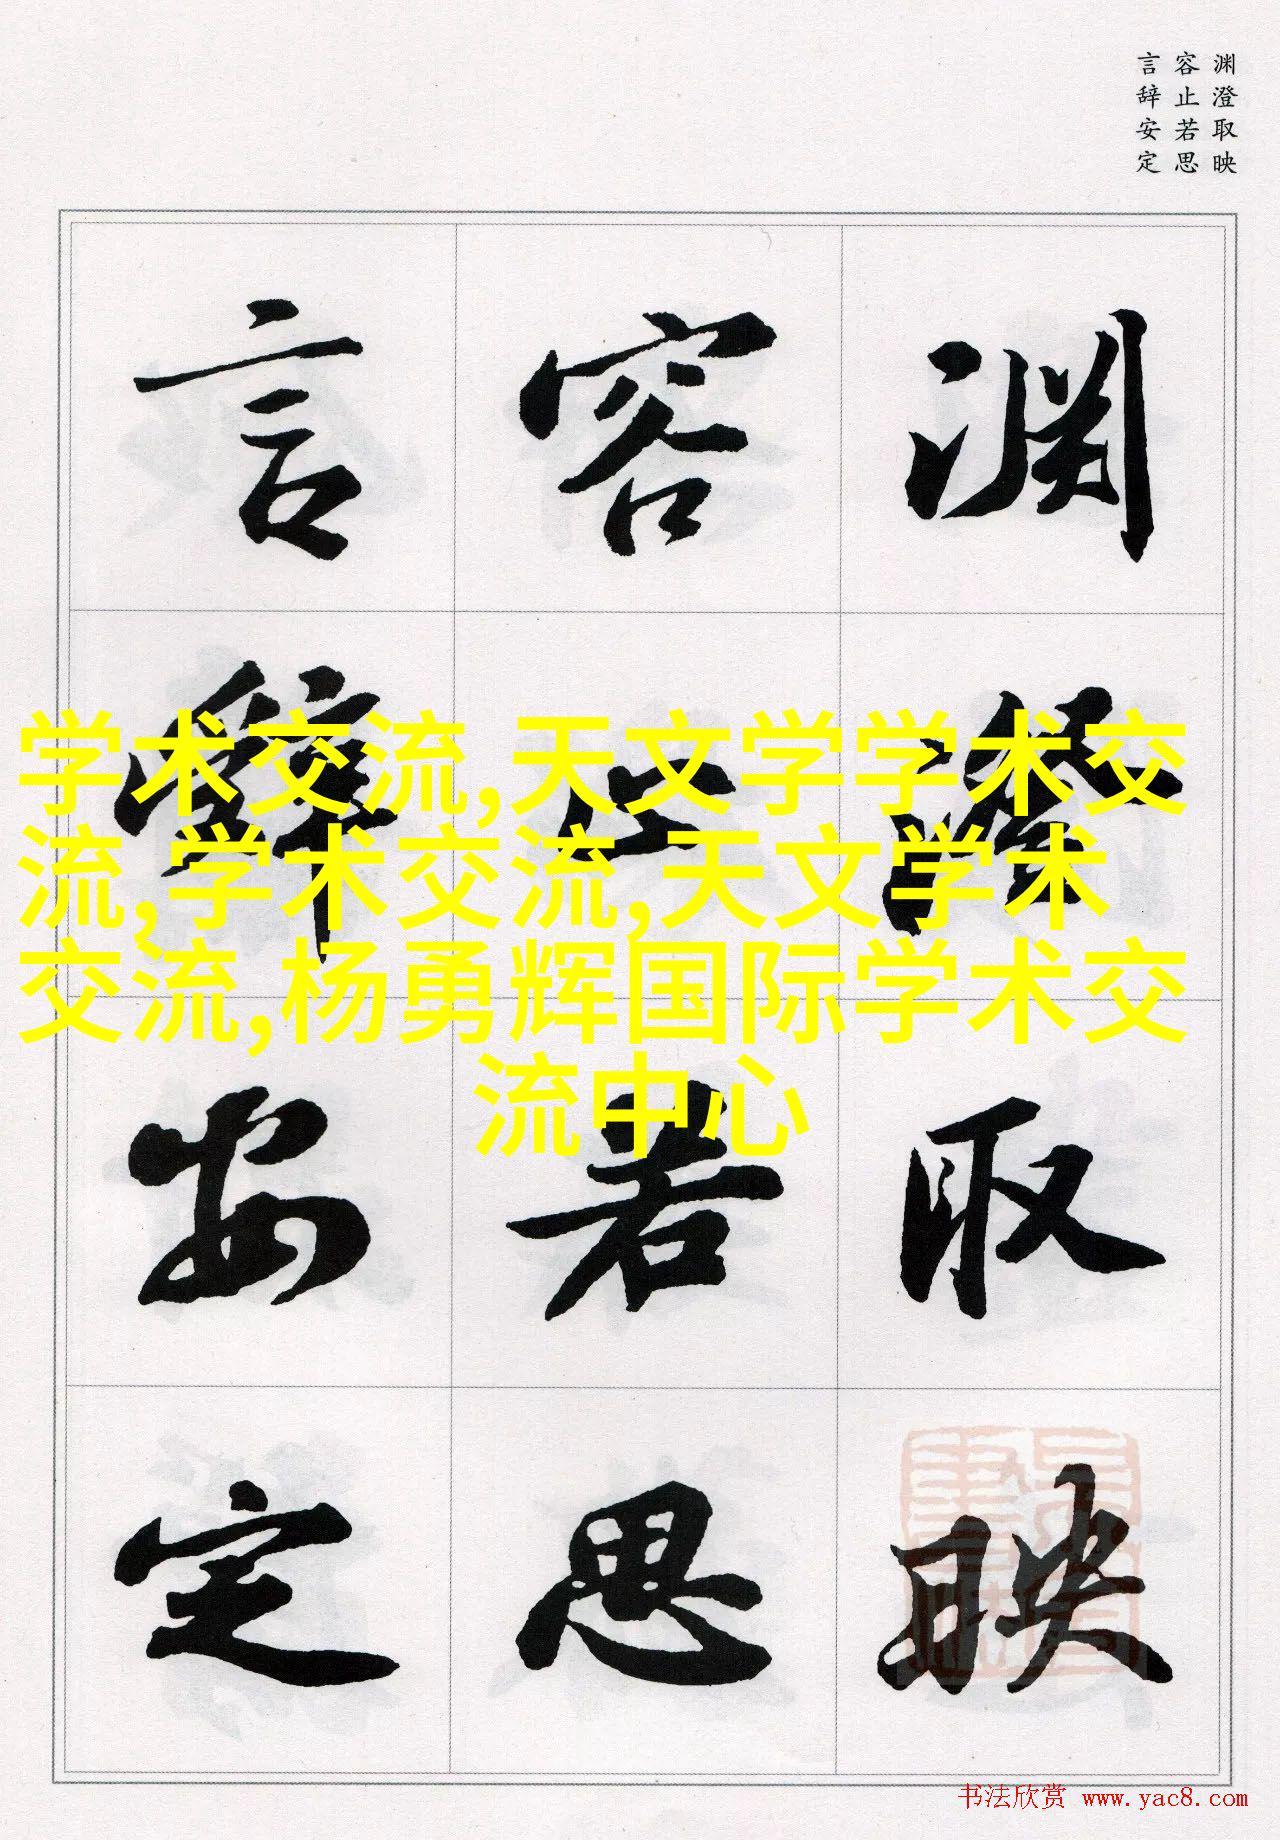 渊澄取映
容止若思
言辞安定
渊澄取映
容止若思
言辞安定
学术交流,天文学学术交
流,学术交流,天文学术
交流,杨勇辉国际学术交
流中心
书法欣赏 www.yac8.com